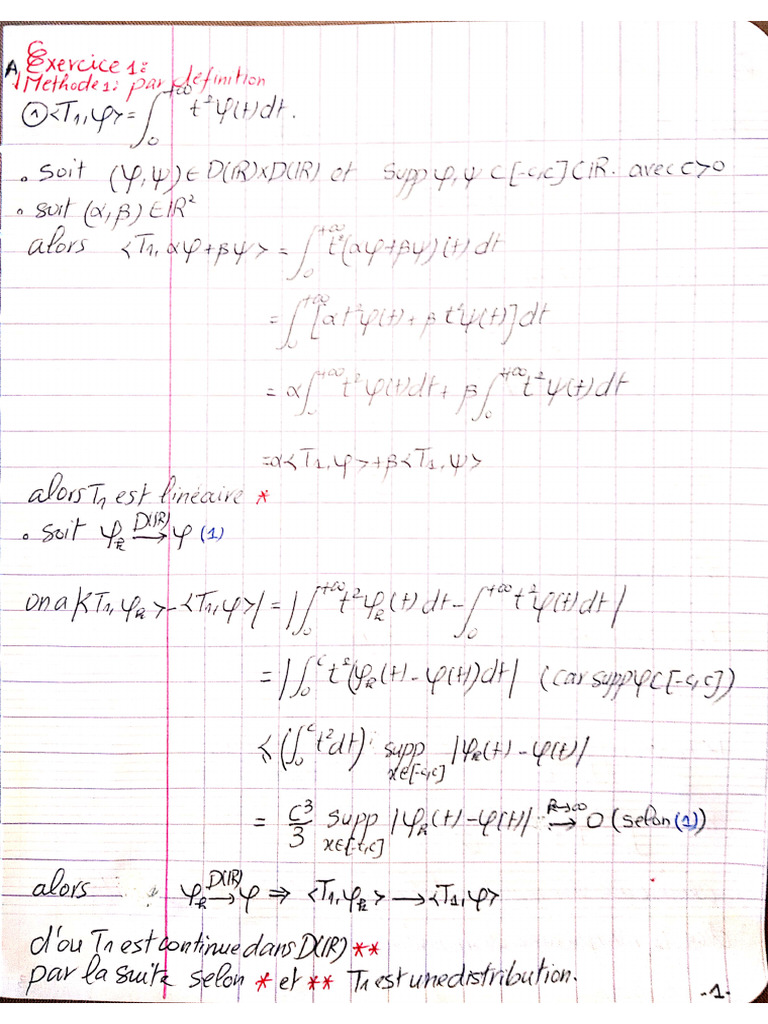 A Exercice 1:
Methode 1: par définition
① <T₁, φ> = ∫₀^{+∞} t² φ(t) dt.
• soit (φ, ψ) ∈ D(IR) x D(IR) et supp φ, ψ ⊂ [-c, c] ⊂ IR. avec c > 0
• soit (α, β) ∈ IR²
alors <T₁, αφ + βψ> = ∫₀^{+∞} t² (αφ + βψ)(t) dt
= ∫₀^{+∞} [α t² φ(t) + β t² ψ(t)] dt
= α ∫₀^{+∞} t² φ(t) dt + β ∫₀^{+∞} t² ψ(t) dt
= α <T₁, φ> + β <T₁, ψ>
alors T₁ est linéaire *
• soit φ_k →^{D(IR)} φ (1)
on a |<T₁, φ_k> - <T₁, φ>| = |∫₀^{+∞} t² φ_k(t) dt - ∫₀^{+∞} t² φ(t) dt|
= |∫₀^c t² (φ_k(t) - φ(t)) dt| (car supp φ ⊂ [-c, c])
≤ (∫₀^c t² dt) · supp_{x∈[-c,c]} |φ_k(t) - φ(t)|
= c³/3 supp_{x∈[-c,c]} |φ_k(t) - φ(t)| →^{k→∞} 0 (selon (1))
alors φ_k →^{D(IR)} φ ⇒ <T₁, φ_k> → <T₁, φ>
d'ou T₁ est continue dans D(IR) **
par la suite selon * et ** T₁ est une distribution.
-1-